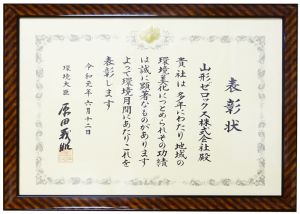 表彰状
山形ゼロックス株式会社殿
貴社は多年にわたり地域の
環境美化につとめられその功績
は誠に顕著なものがあります
よって環境月間にあたりこれを
表彰します
令和元年六月十二日
環境大臣 原田義昭